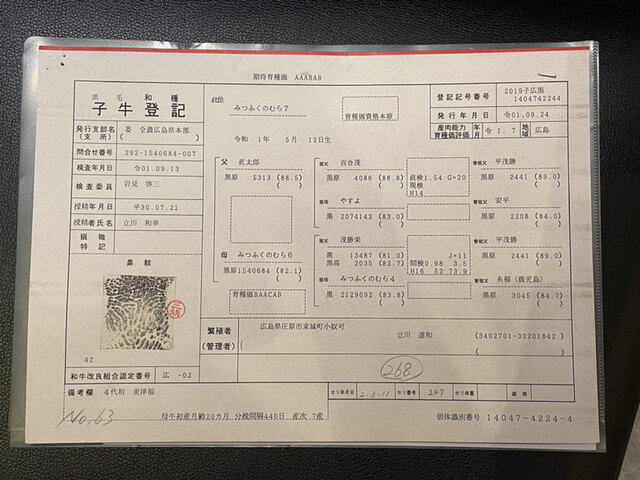 期待育種価 AAABAB
黒毛和種
子牛登記
此佐
みつふくのむら7
育種価資格本原
登記記号番号 2019子広黒
1404742244
発行年月日 令01.09.24
産肉能力育種価評価 年月 令 1.7 地域 広島
発行支部名(支所) 委 全農広島県本部
令和 1年 5月 12日生
問合せ番号 292-1540684-007
検査年月日 令01.09.13
検査委員 岩見 啓三
授精年月日 平30.07.21
授精者氏名 立川 和幸
損徴特記
鼻紋
42
和牛改良組合認定番号 広 -02
父 直太郎
黒原 5313 (88.5)
母 みつふくのむら6
黒原1540684 (82.1)
育種価BAACAB
祖父 百合茂
黒原 4086 (88.8)
直検1.54 G=20
現検
H14
祖母 やすよ
黒原 2074143 (83.0)
祖父 茂勝栄
黒 13487 (81.0)
黒高 2035 (82.7)
J=11
間検0.98 3.5
H16 52 73.9
祖母 みつふくのむら4
黒 2129092 (83.8)
曽祖父 平茂勝
黒原 2441 (89.0)
曽祖父 安平
黒原 2208 (84.0)
曽祖父 平茂勝
黒原 2441 (89.0)
曽祖父 糸福(鹿児島)
黒原 3045 (84.7)
繁殖者
(管理者)
広島県庄原市東城町小奴可
立川 道和 (3402701-30201842)
268
備考欄 4代祖 美津福
セリ年月日 2.3.11 セリ番号 247 セリ体重 価格
No,63
母牛初産月齢20カ月 分娩間隔440日 産次 7産
個体識別番号 14047-4224-4